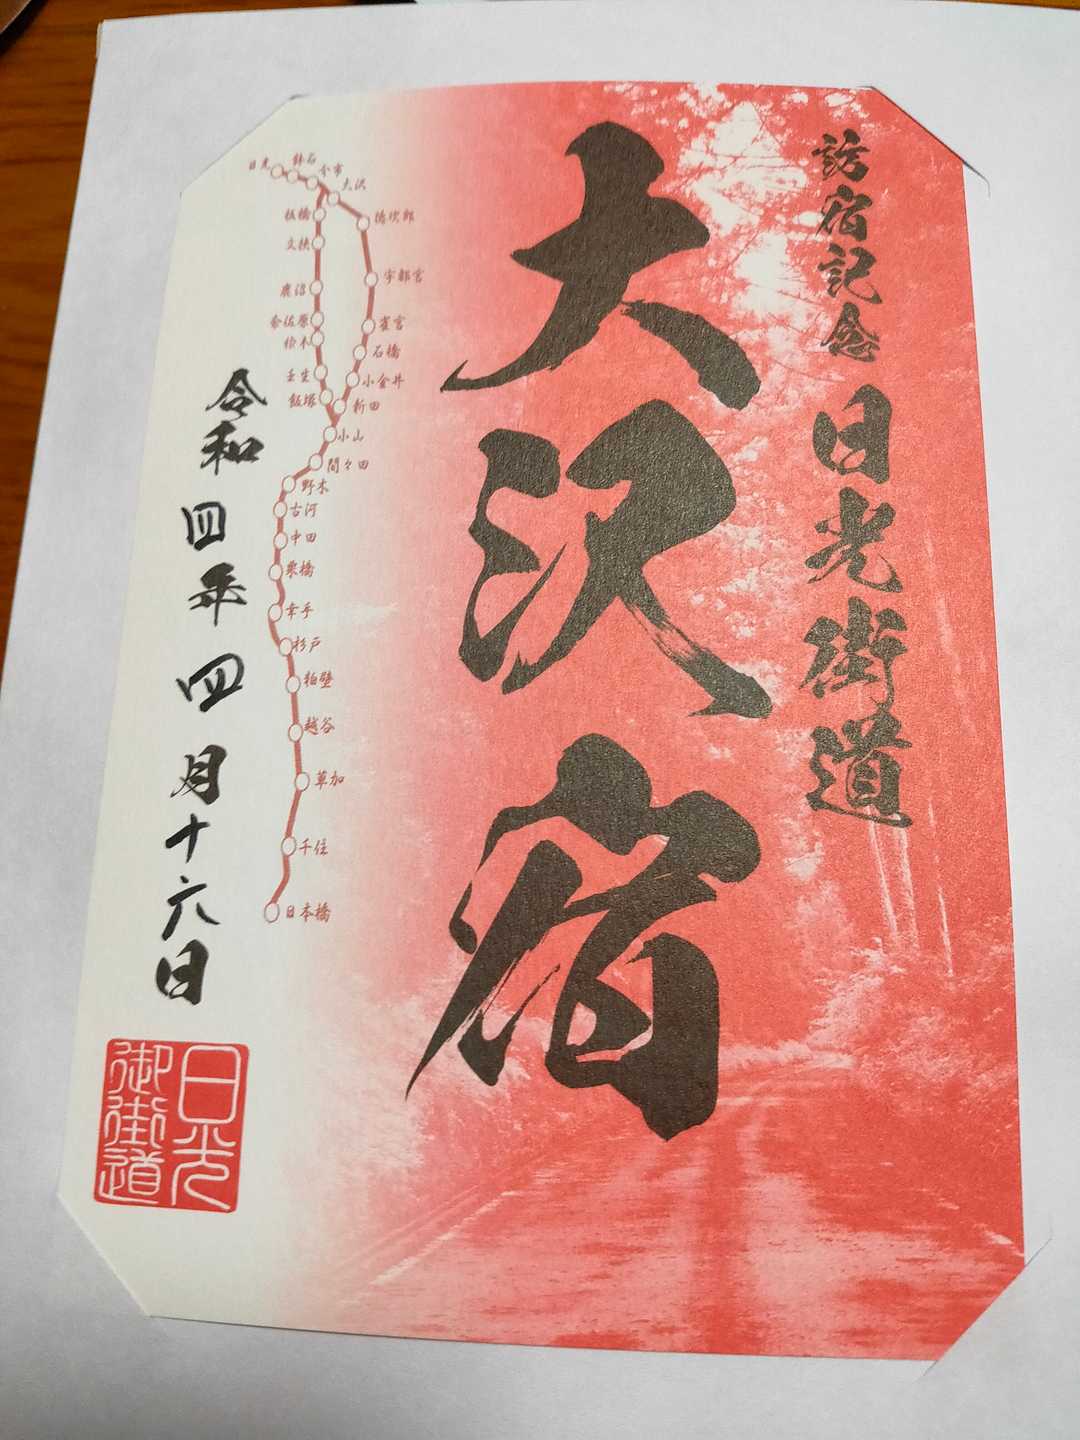 訪宿記念 日光街道
大沢宿
日光
鉢石
今市
大沢
板橋
文挟
鹿沼
奈佐原
楡木
壬生
飯塚
徳次郎
宇都宮
雀宮
石橋
小金井
新田
小山
間々田
野木
古河
中田
栗橋
幸手
杉戸
粕壁
越谷
草加
千住
日本橋
令和四年四月十六日
日光
御街道